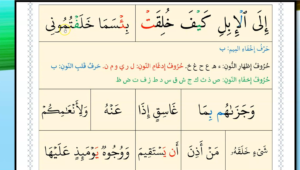 إِلَى ٱلْإِبِلِ كَيْفَ خُلِقَتْ بِئْسَمَا خَلَفْتُمُونِى
حَرْفُ إِخْفَاءِ المِيمِ: ب
حُرُوفُ إِظْهَارِ النُّونِ: ء ه ع ح غ خ. حُرُوفُ إِدْغَامِ النُّونِ: ل ر ي و م ن. حَرْفُ قَلْبِ النُّونِ: ب
حُرُوفُ إِخْفَاءِ النُّونِ: ص ذ ث ك ج ش ق س د ط ز ف ت ض ظ
وَجَزَىٰهُم بِمَا غَاسِقٍ إِذَا عَنْهُ وَلِأَنْعَـٰمِكُمْ
شَىْءٍ خَلَقَهُۥ مَنْ أَذِنَ أَن يَسْتَقِيمَ وَوُجُوهٌ يَوْمَئِذٍ عَلَيْهَا